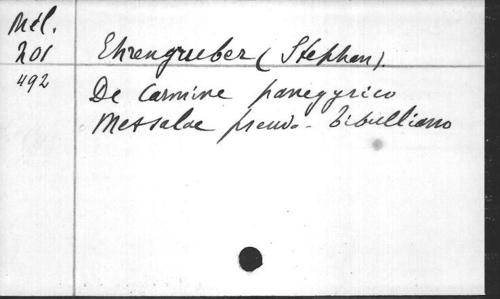 Mél.
201
492
Ehrengruber (Stephan).
De carmine panegyrico
Messalae pseudo-Tibulliano